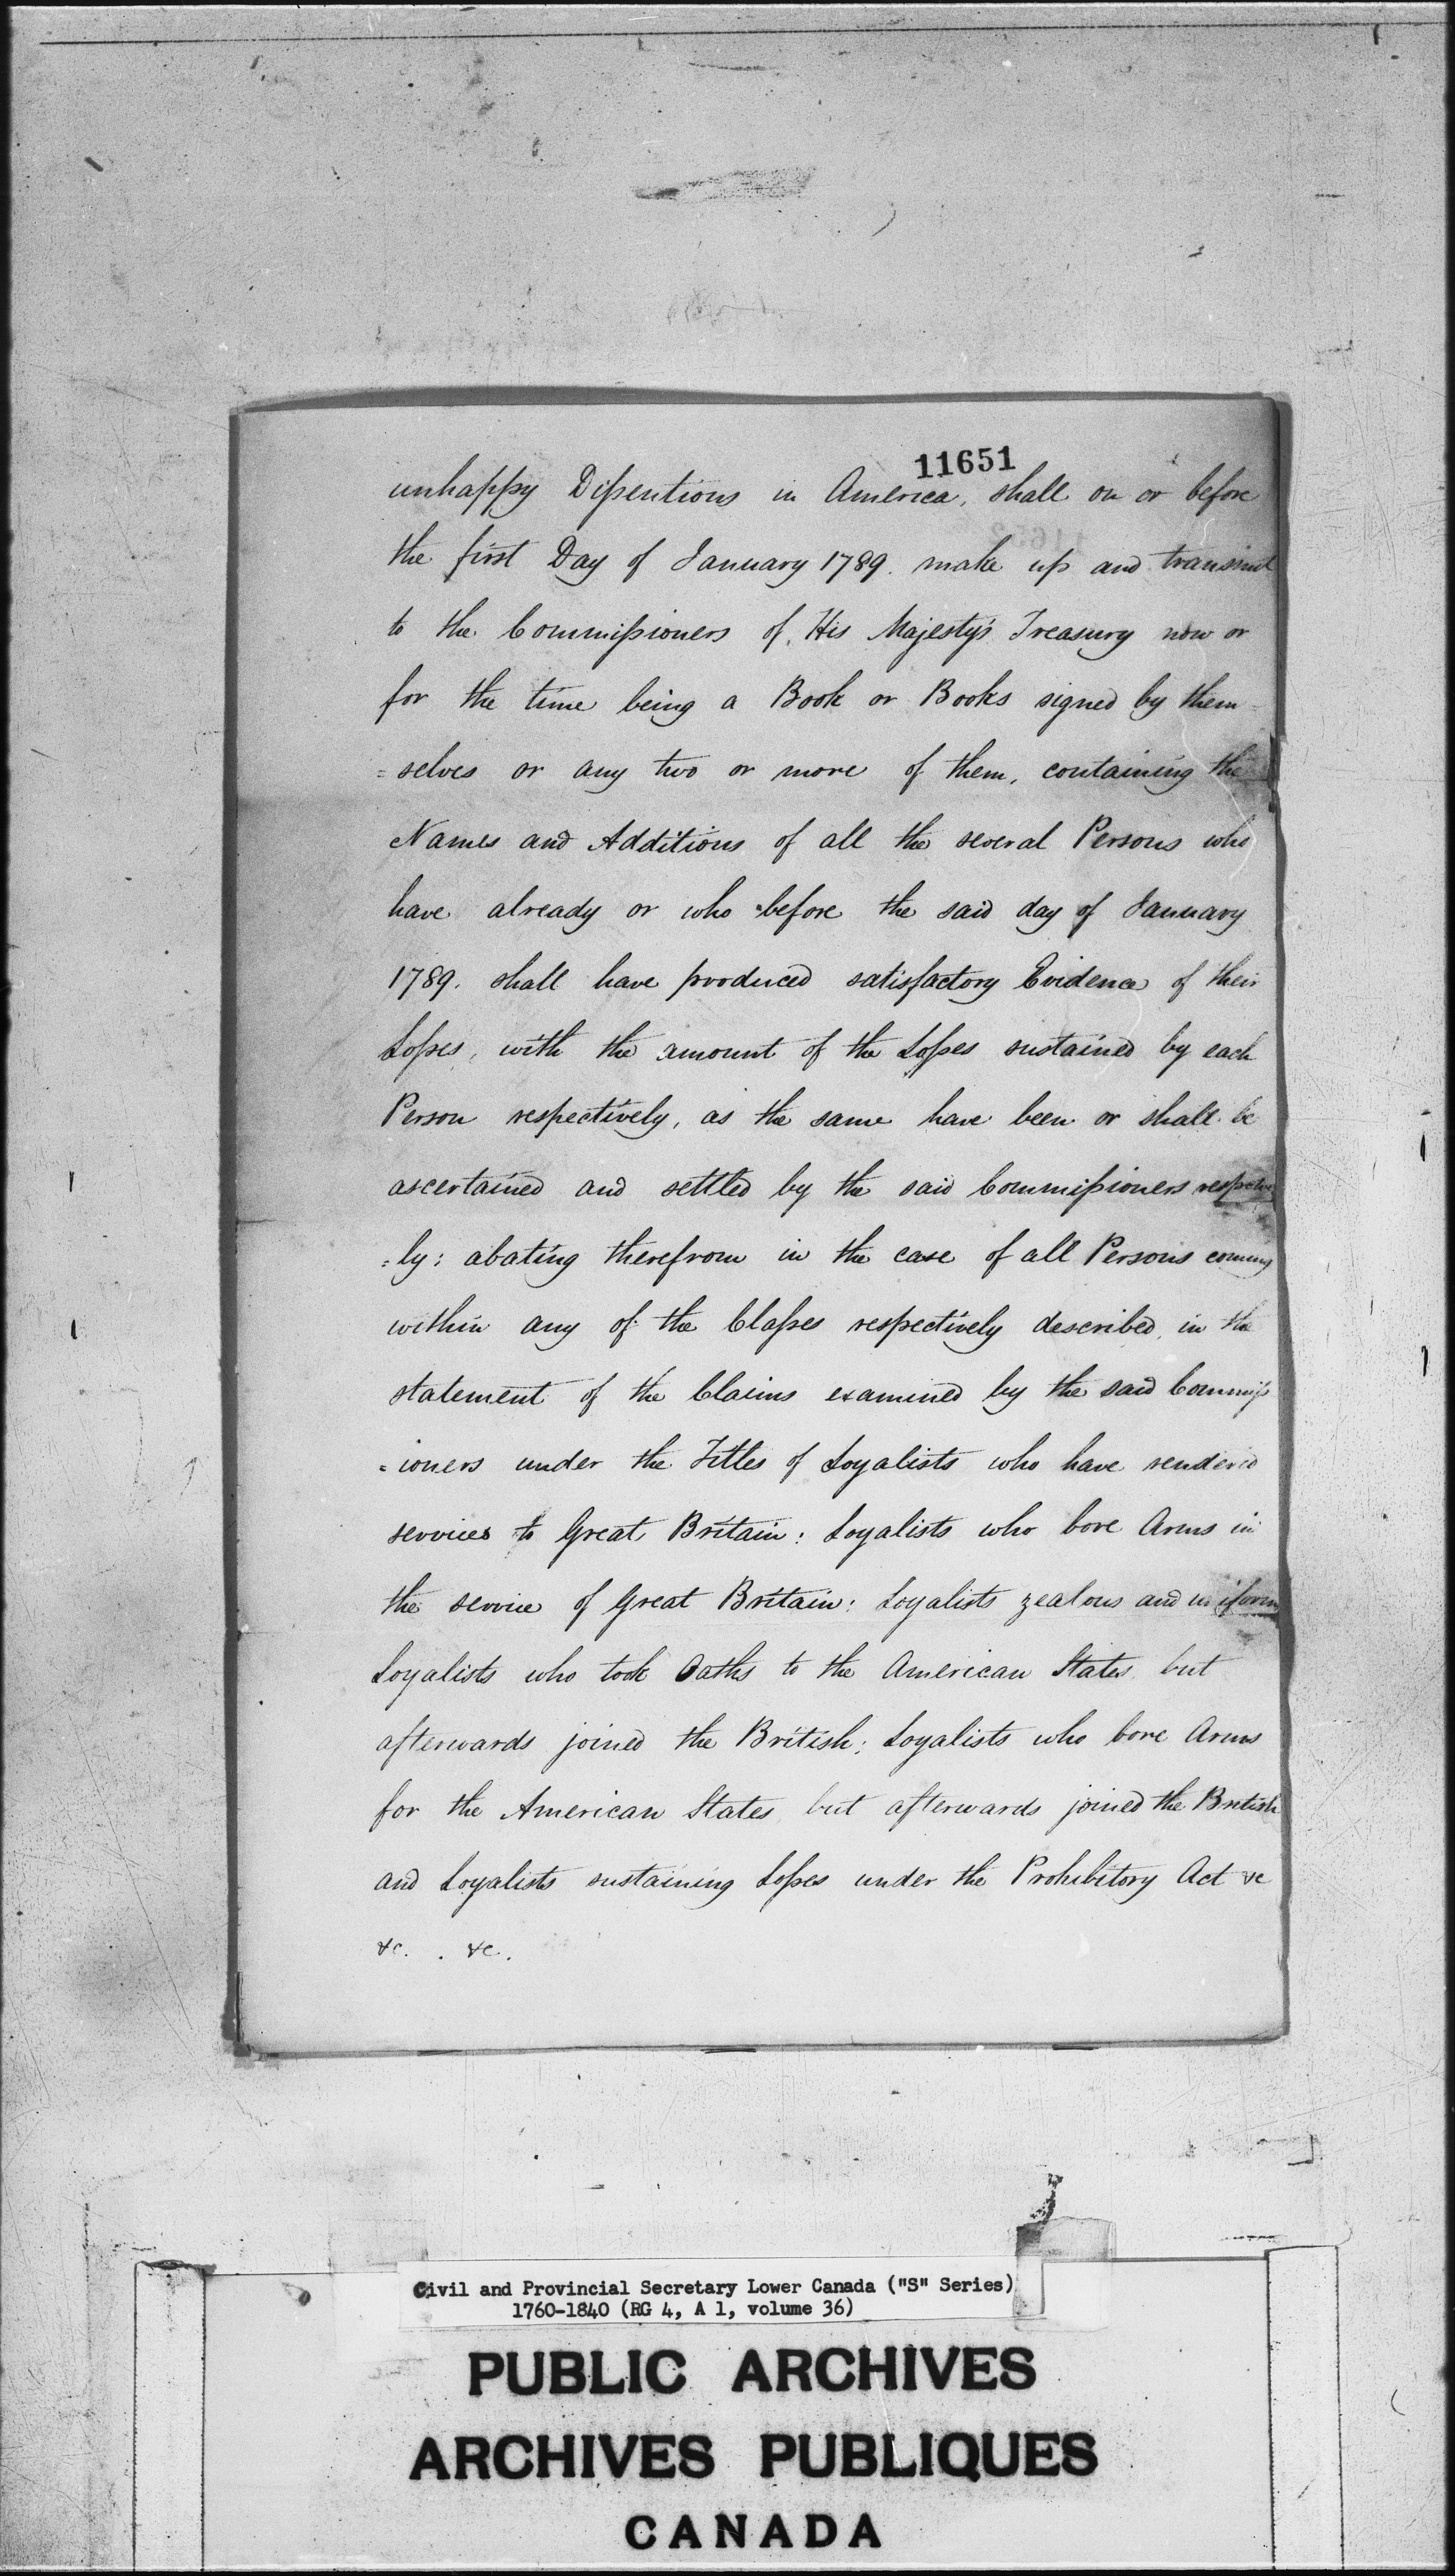 11651
unhappy Dissentions in America, shall on or before
the first Day of January 1789. make up and transmit
to the Commissioners of His Majesty's Treasury now or
for the time being a Book or Books signed by them
= selves or any two or more of them, containing the
Names and Additions of all the several Persons who
have already or who before the said day of January
1789. shall have produced satisfactory Evidence of their
Losses, with the amount of the Losses sustained by each
Person respectively, as the same have been or shall be
ascertained and settled by the said Commissioners respective
=ly: abating therefrom in the case of all Persons coming
within any of the Classes respectively described in the
statement of the Claims examined by the said Commiss
= ioners under the Titles of Loyalists who have rendered
services to Great Britain: Loyalists who bore Arms in
the service of Great Britain: Loyalists zealous and uniform
Loyalists who took Oaths to the American States but
afterwards joined the British: Loyalists who bore Arms
for the American States but afterwards joined the British
and Loyalists sustaining Losses under the Prohibitory Act &c
&c. . &c.
Civil and Provincial Secretary Lower Canada ("S" Series)
1760-1840 (RG 4, A 1, volume 36)
PUBLIC ARCHIVES
ARCHIVES PUBLIQUES
CANADA